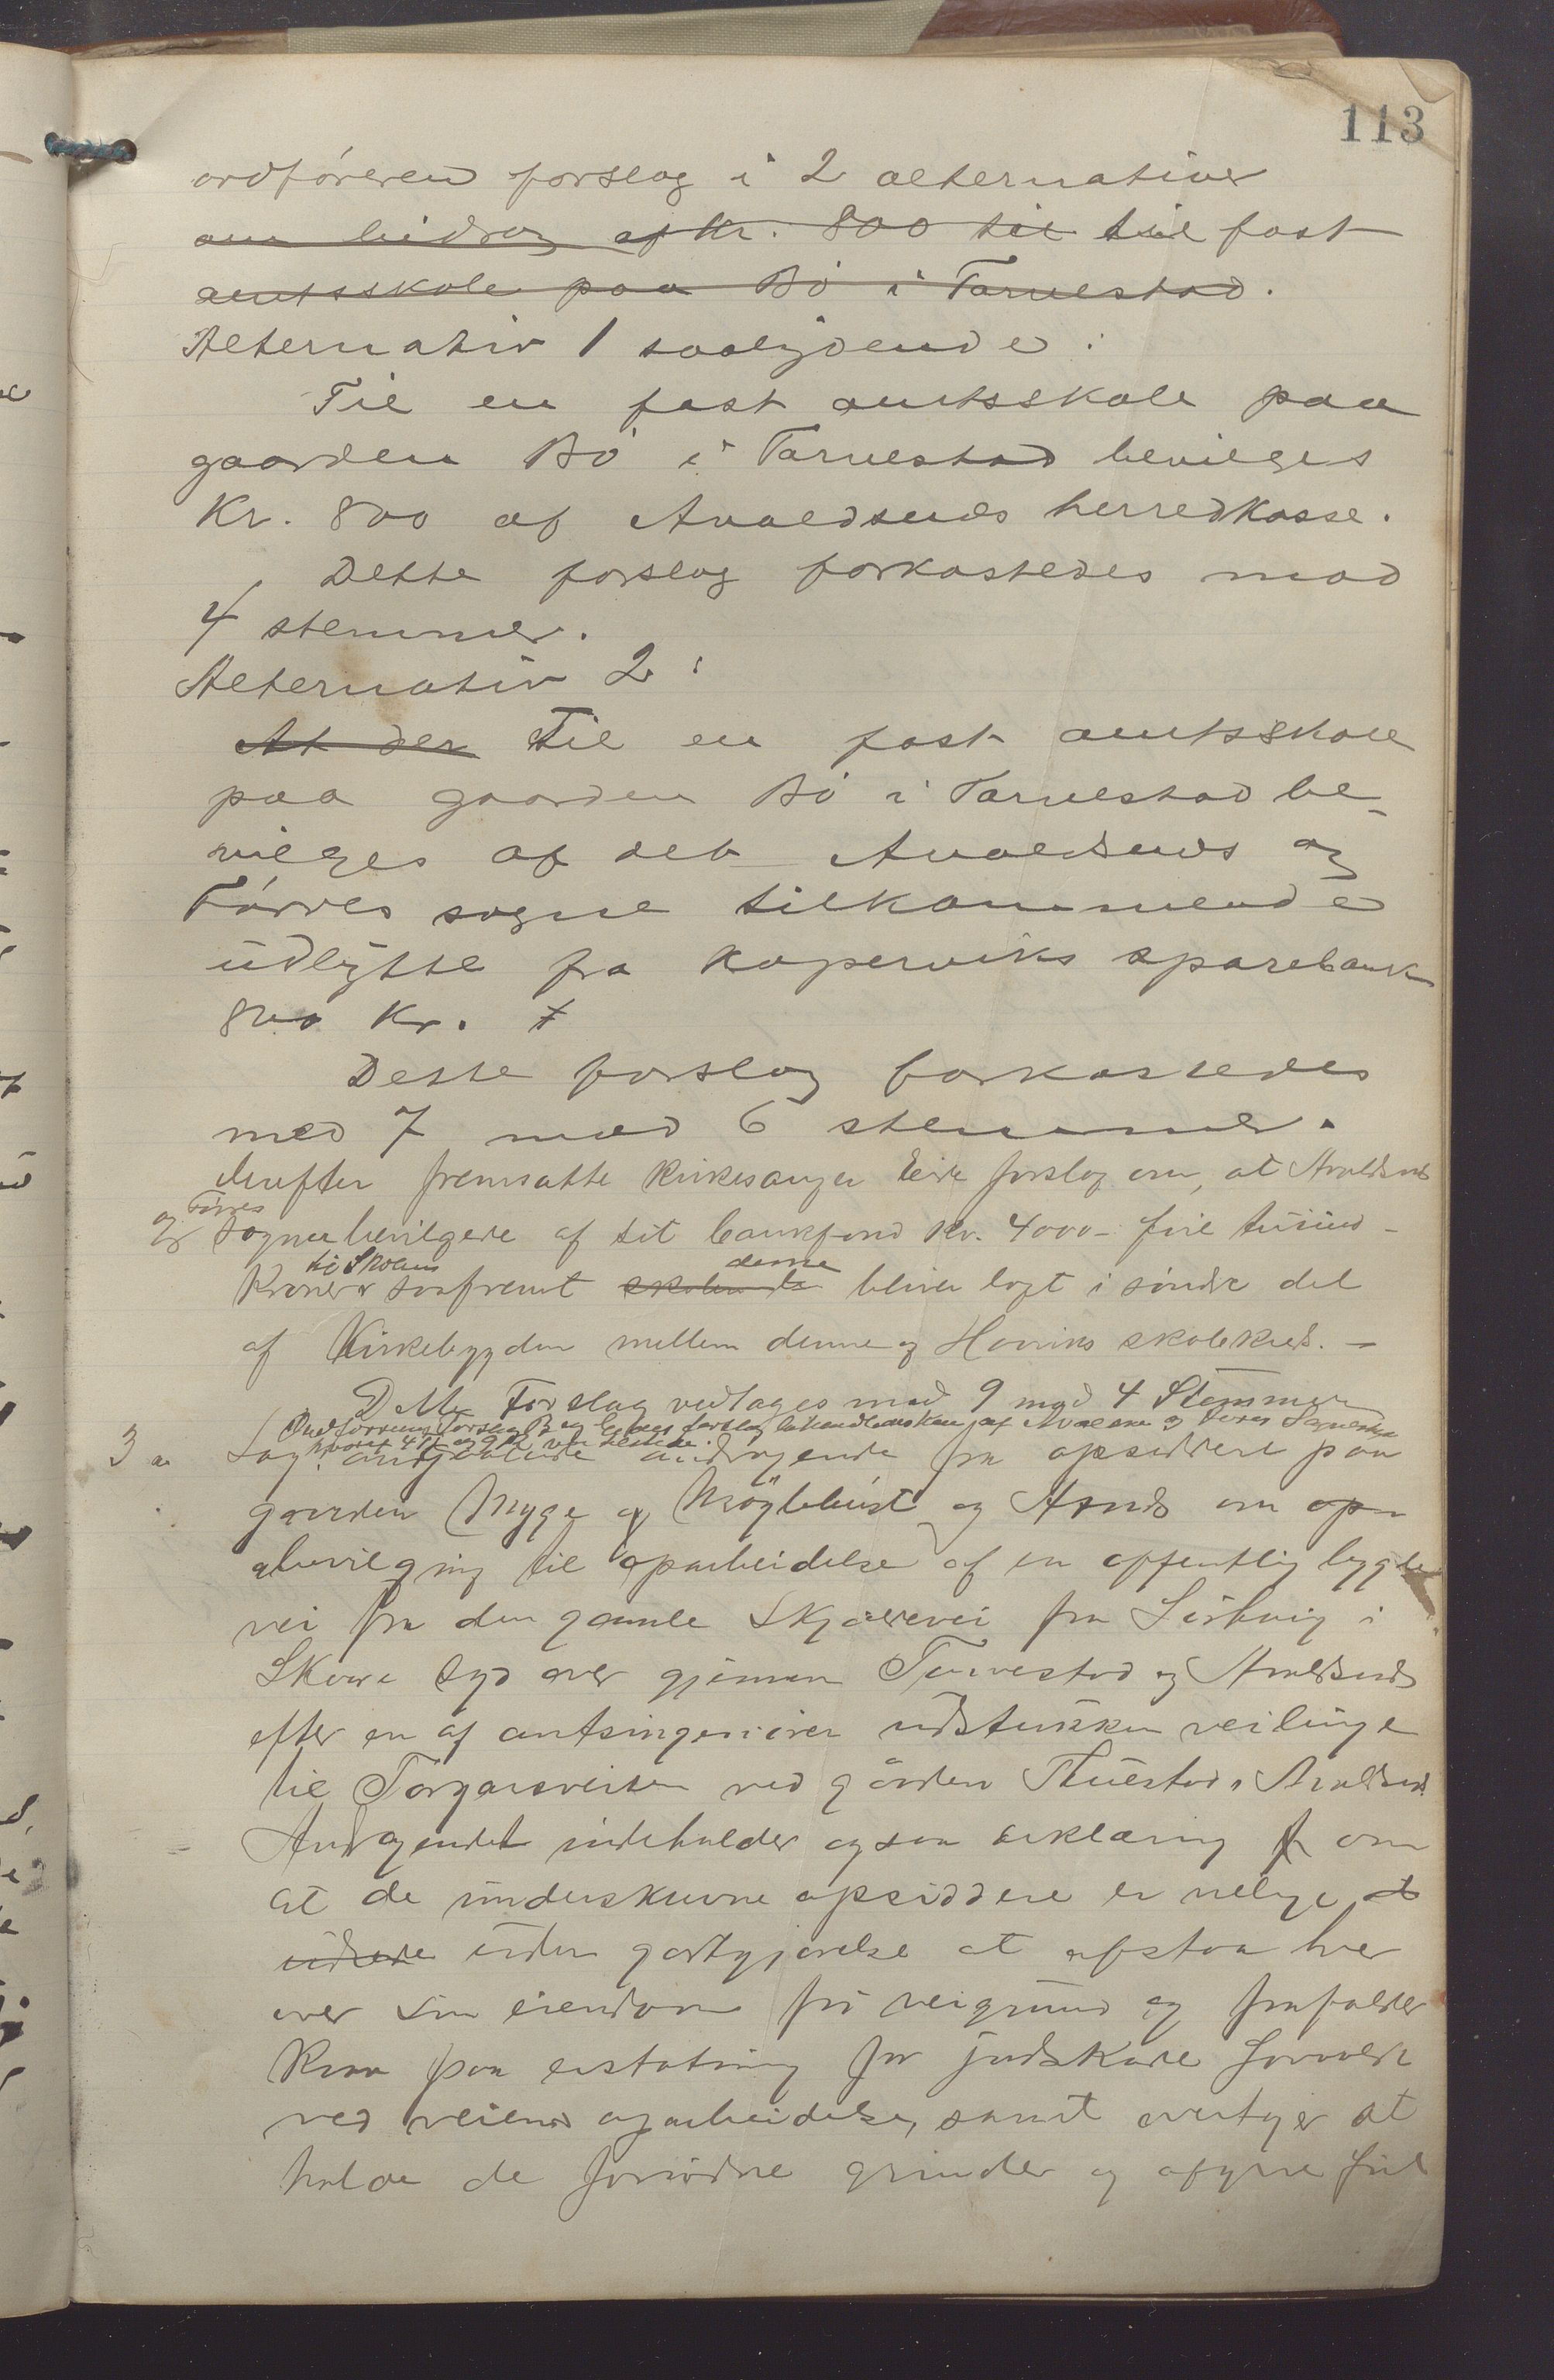 113
ordføreren forslag i 2 alternativer
om bidrag af Kr. 800 til til fast
amtsskole paa Bø i Tarvestad.
Alternativ 1 saalydende:
Til en fast amtsskole paa
gaarden Bø i Tarvestad bevilges
Kr. 800 af Avaldsnes herredkasse.
Dette forslag forkastedes mod
4 stemmer.
Alternativ 2:
At der Til en fast amtsskole
paa gaarden Bø i Tarvestad be-
vilges af det Avaldsnes og
Førres sogne tilkommende
udbytte fra Kopervviks sparebank
800 Kr.
Dette forslag forkastedes
med 7 mod 6 stemmer.
Derefter fremsatte Kirkesanger Eike forslag om, at Avaldsnes
og Førres
sogne bevilgede af sit bankfond Kr. 4000 - fire tusind -
til Skolen denne
Kroner saafremt skolen bliver lagt i søndre del
af Kirkebygden mellem denne og Haviks skolekreds. -
Dette Forslag vedtages mod 9 mod 4 Stemmer
Ordførerens Forslag B og Eikes forslag behandledes kun af Avaldsnes og Føres Sogne
hvoraf 4 og 9
3 Sag. angaaende andragende fra opsiddere paa
gaarden Myge og Møglebust og Hønds om
bevilgning til oparbeidelse af en offentlig bygde
vei fra den gamle Skjærevei fra i
Skare syd over gjennem Tarvestad og Avaldsnes
efter en af amtsingeniøren udstukken veilinge
til Torgarsveien ved gården Thuestad i Avaldsnes.
Andragendet indeholder ogsaa erklæring om
at de underskrevne opsiddere er velige at
uden godtgjørelse at afstaa hver
over sin eiendom fri veigrund og frafalder
Krav paa erstatning for jordskade forvoldt
ved veiens oparbeidelse, samt overtager at
holde de fornødne grinder og afgive frit